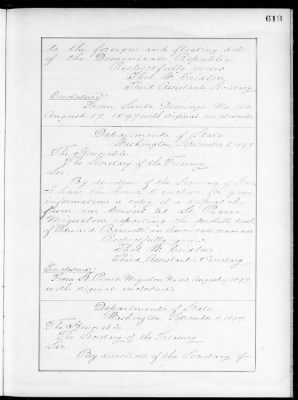 613
to the foreign and floating debt
of the Dominican Republic.
Respectfully yours
Thos. W. Cridler
Third Assistant Secretary
Enclosure:
From Santo Domingo No.
August 17, 1897 with original enclosure
Department of State
Washington, September 8, 1897
The Honorable
The Secretary of the Treasury
Sir:
By direction of the Secretary of State
I have the honor to enclose for your
information a copy of a despatch
from our Consul at St. Pierre,
Miquelon, reporting the death
of Edward Bennett, an American seaman
Respectfully yours
Thos. W. Cridler
Third Assistant Secretary
Enclosure:
From St. Pierre, Miquelon, No. August 1897
with original enclosure.
Department of State
Washington, September 1897
The Honorable
The Secretary of the Treasury
Sir:
By direction of the Secretary of